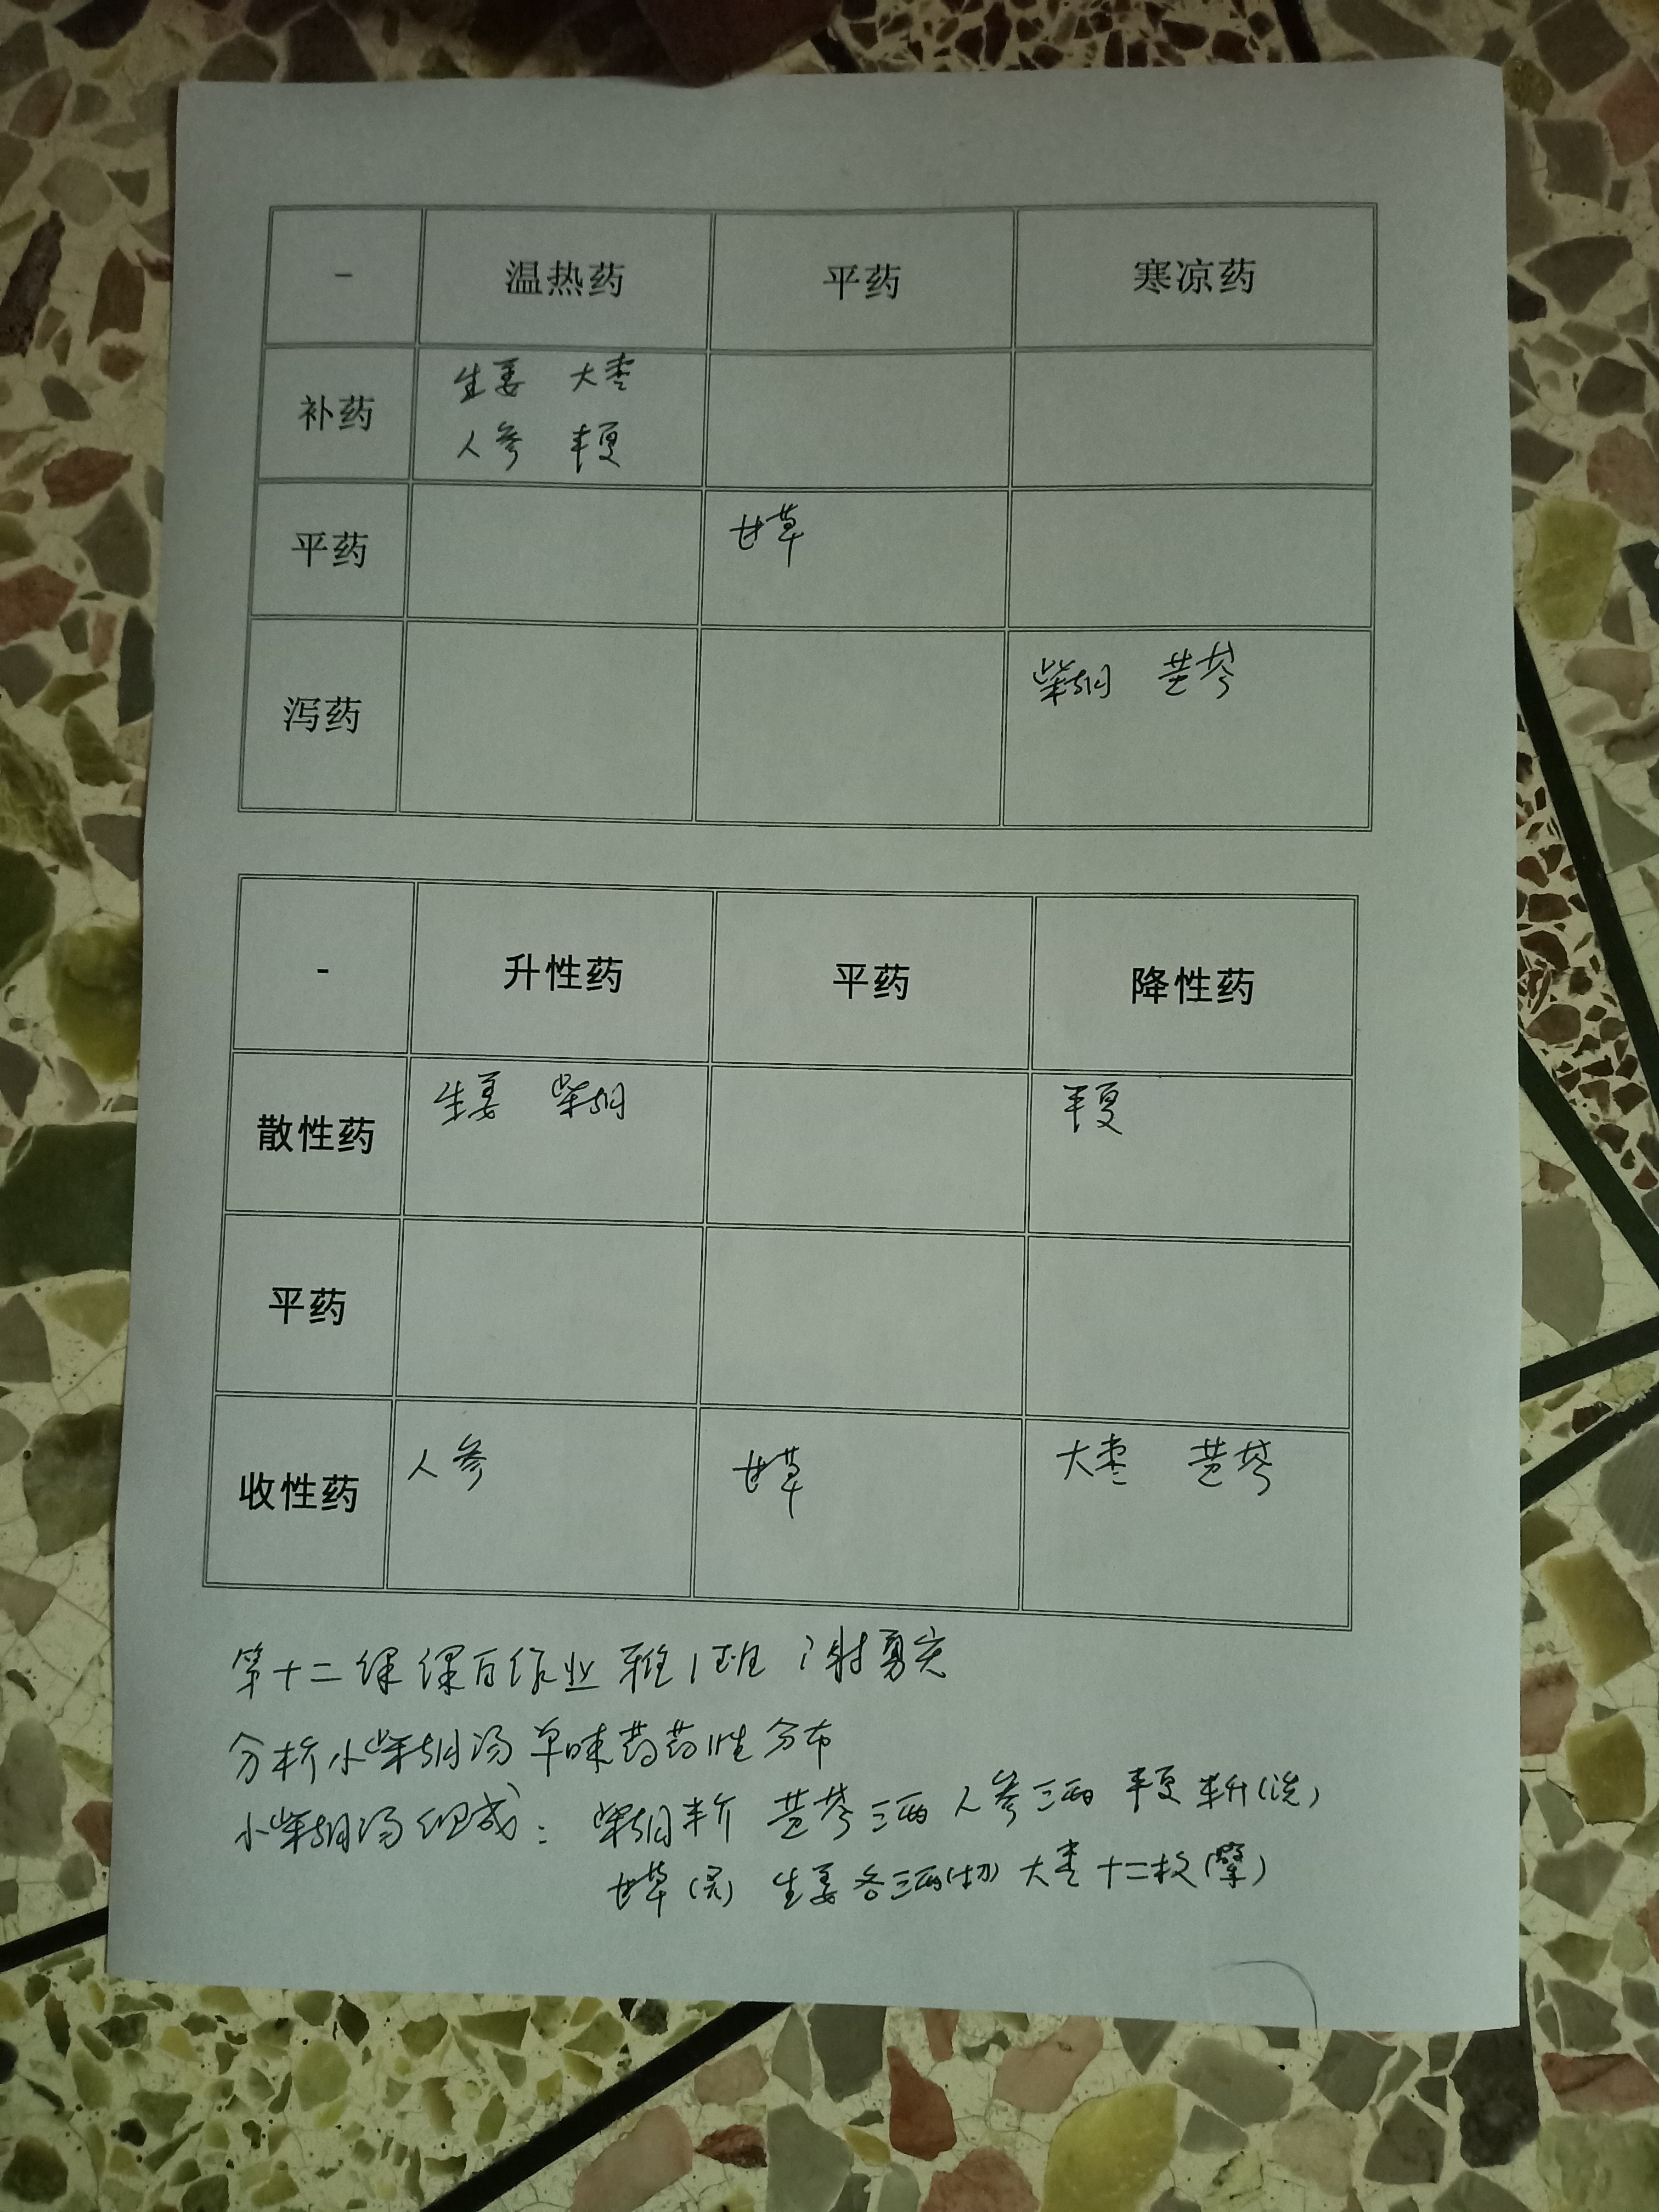 - 温热药 平药 寒凉药
补药 生姜 大枣
人参 半夏
平药 甘草
泻药 柴胡 黄芩
- 升性药 平药 降性药
散性药 生姜 柴胡 半夏
平药
收性药 人参 甘草 大枣 黄芩
第十二课课后作业 雅1班 谢勇
分析小柴胡汤单味药药性分布
小柴胡汤组成: 柴胡半斤 黄芩三两 人参三两 半夏半升(洗)
甘草(炙) 生姜各三两(切) 大枣十二枚(擘)